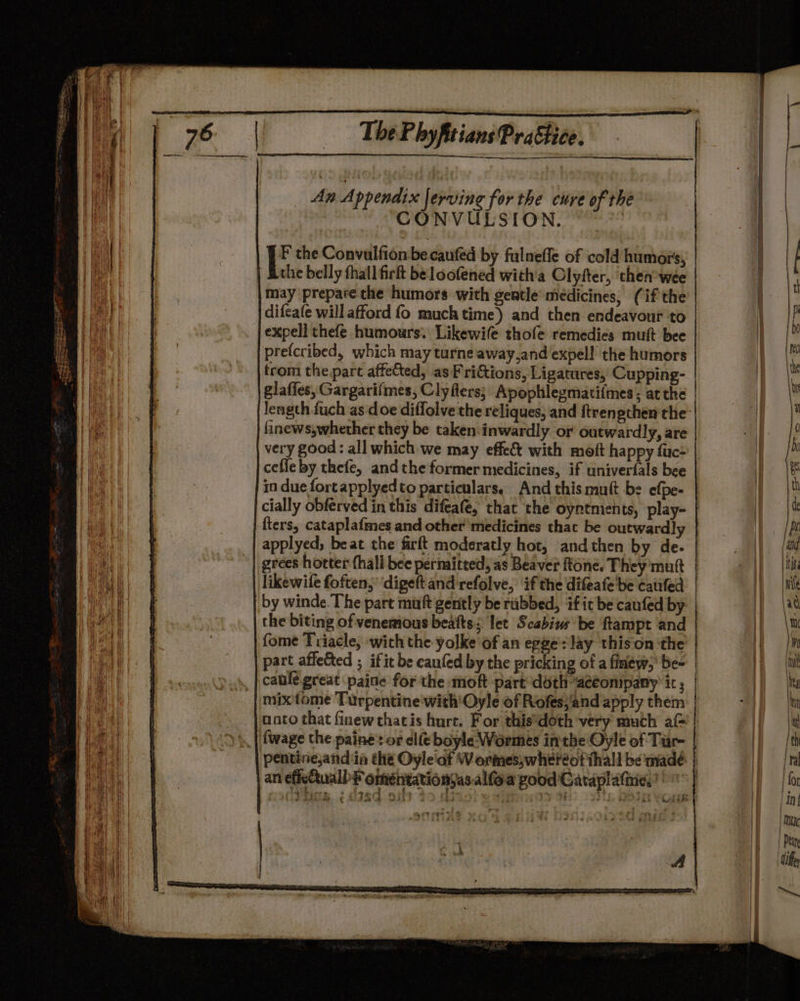 76 The Phyſitians Practice.
An Appendix ſerving for the cure of the
CONVULSION.
IF the Convulſion be cauſed by fulneſſe of cold humors,
the belly ſhall firſt be looſened with a Clyſter, then wee
may prepare the humors with gentle medicines, (if the
diſeaſe will afford ſo much time) and then endeavour to
expell theſe humours. Likewiſe thoſe remedies muſt bee
preſcribed, which may turne away, and expell the humors
from the part affected, as Frictions, Ligatures, Cupping-
glaſſes, Gargariſmes, Clyſters, Apophlegmatiſmes; at the
length ſuch as doe diſſolve the reliques, and ſtrengthen the
ſinews, whether they be taken inwardly or outwardly, are
very good: all which we may effect with moſt happy ſuc-
ceſſe by theſe, and the former medicines, if univerſals bee
in due ſort applyed to particulars. And this muſt be eſpe-
cially obſerved in this diſeaſe, that the oyntments, play-
ſters, cataplaſmes and other medicines that be outwardly
applyed, beat the firſt moderatly hot, and then by de-
grees hotter ſhall bee permitted, as Beaver ſtone. They muſt
likewiſe ſoften, digeſt and reſolve, if the diſeaſe be cauſed
by winde. The part muſt gently be rubbed, if it be cauſed by
the biting of venemous beaſts; let Scabius be ſtampt and
ſome Triacle, with the yolke of an egge: lay this on the
part affected; if it be cauſed by the pricking of a ſinew, be-
cauſe great paine for the moſt part doth accompany it;
mix ſome Turpentine with Oyle of Roſes, and apply them
unto that ſinew that is hurt. For this doth very much aſ-
ſwage the paine: or elſe boyle Wormes in the Oyle of Tur-
pentine, and in the Oyle of Wormes, whereof ſhall be made
an effectuall Fomentation, as alſo a good Cataplaſme.
A